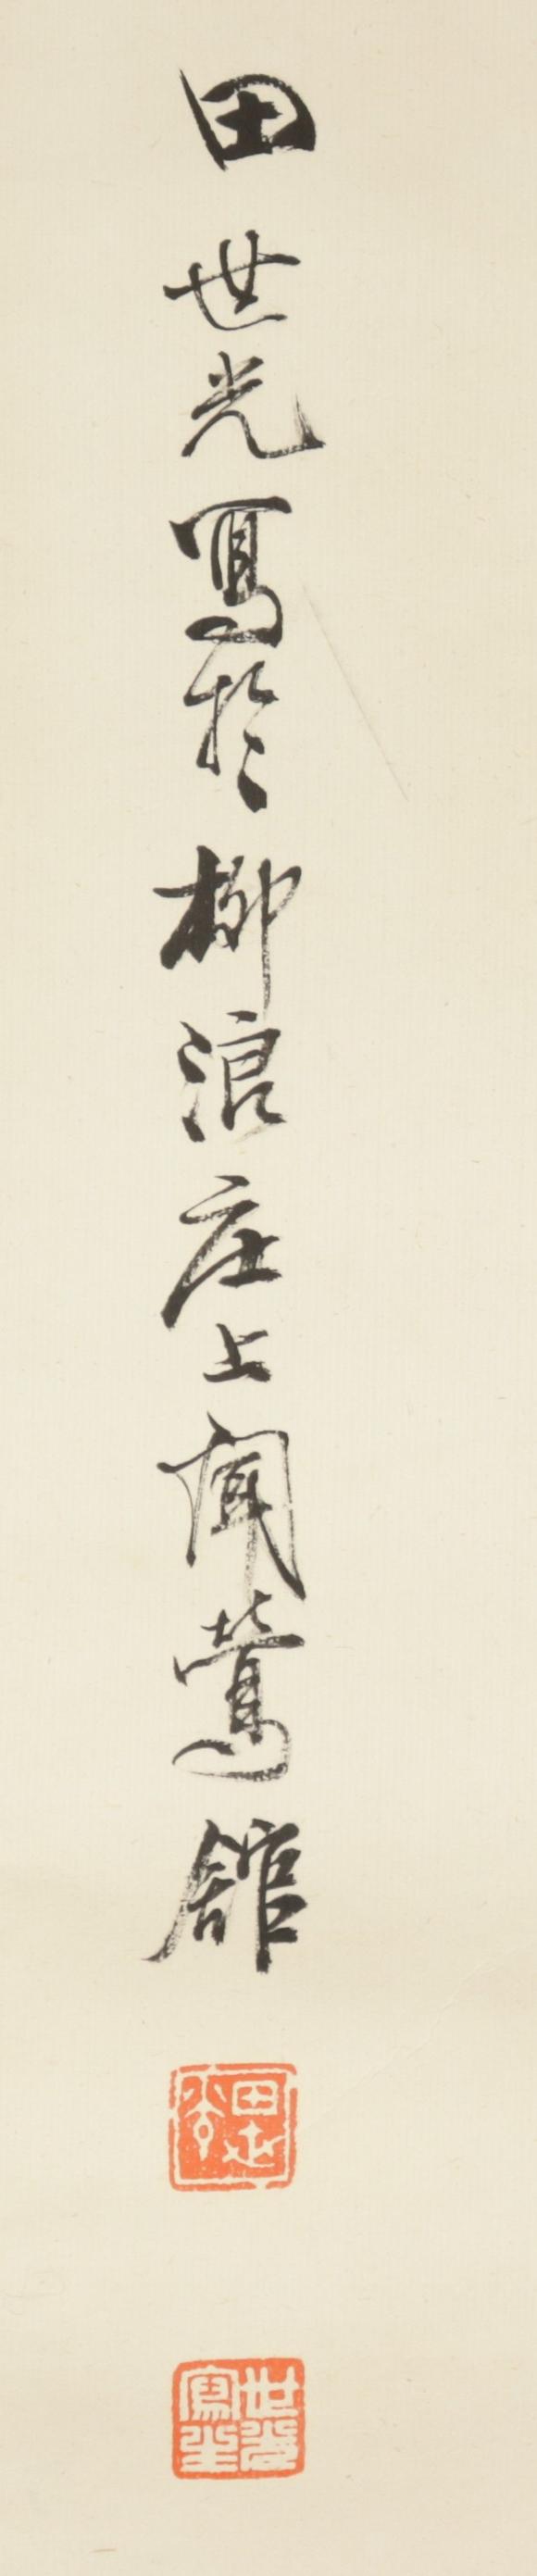 田世光寫於柳浪庄上聞鶯館
田世光
世光寫生